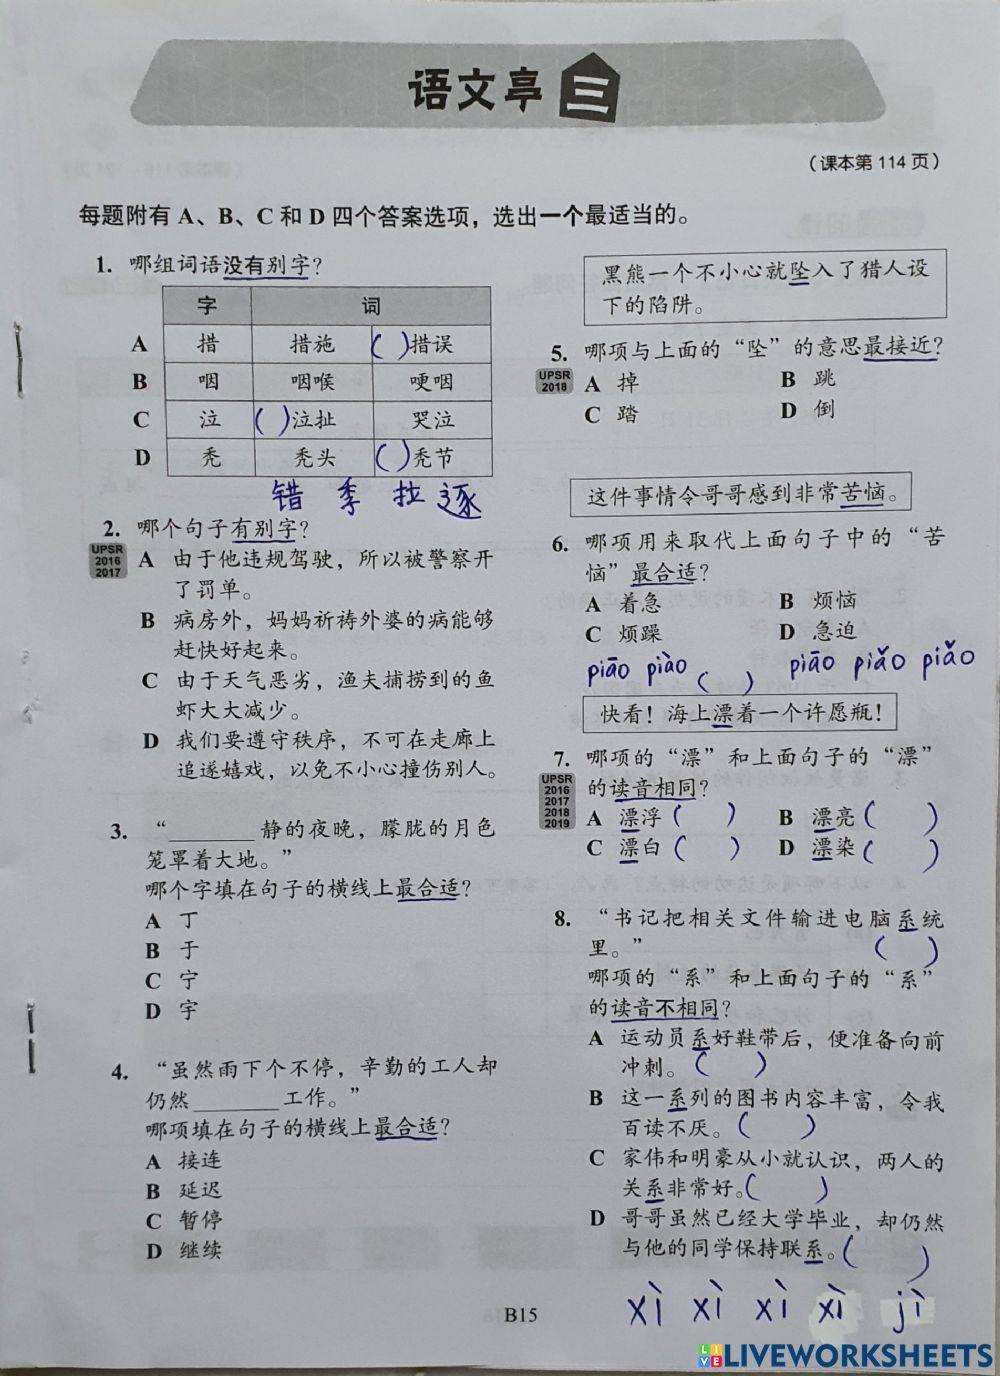 语文亭 三
(课本第 114 页)
每题附有 A、B、C 和 D 四个答案选项，选出一个最适当的。
1. 哪组词语没有别字？
字 词
A 措 措施 ( )措误
B 咽 咽喉 哽咽
C 泣 ( )泣扯 哭泣
D 秃 秃头 ( )秃节
错 季 拉 逐
2. 哪个句子有别字？
UPSR
2016
2017
A 由于他违规驾驶，所以被警察开
了罚单。
B 病房外，妈妈祈祷外婆的病能够
赶快好起来。
C 由于天气恶劣，渔夫捕捞到的鱼
虾大大减少。
D 我们要遵守秩序，不可在走廊上
追遂嬉戏，以免不小心撞伤别人。
3. “________ 静的夜晚，朦胧的月色
笼罩着大地。”
哪个字填在句子的横线上最合适？
A 丁
B 于
C 宁
D 宇
4. “虽然雨下个不停，辛勤的工人却
仍然________工作。”
哪项填在句子的横线上最合适？
A 接连
B 延迟
C 暂停
D 继续
黑熊一个不小心就坠入了猎人设
下的陷阱。
5. 哪项与上面的“坠”的意思最接近？
UPSR
2018
A 掉 B 跳
C 踏 D 倒
这件事情令哥哥感到非常苦恼。
6. 哪项用来取代上面句子中的“苦
恼”最合适？
A 着急 B 烦恼
C 烦躁 D 急迫
piāo piào ( ) piāo piǎo piǎo
快看！海上漂着一个许愿瓶！
7. 哪项的“漂”和上面句子的“漂”
的读音相同？
UPSR
2016
2017
2018
2019
A 漂浮 ( ) B 漂亮 ( )
C 漂白 ( ) D 漂染 ( )
8. “书记把相关文件输进电脑系统
里。” ( )
哪项的“系”和上面句子的“系”
的读音不相同？
A 运动员系好鞋带后，便准备向前
冲刺。( )
B 这一系列的图书内容丰富，令我
百读不厌。( )
C 家伟和明豪从小就认识，两人的
关系非常好。( )
D 哥哥虽然已经大学毕业，却仍然
与他的同学保持联系。( )
xì xì xì xì jì
B15
LIVEWORKSHEETS